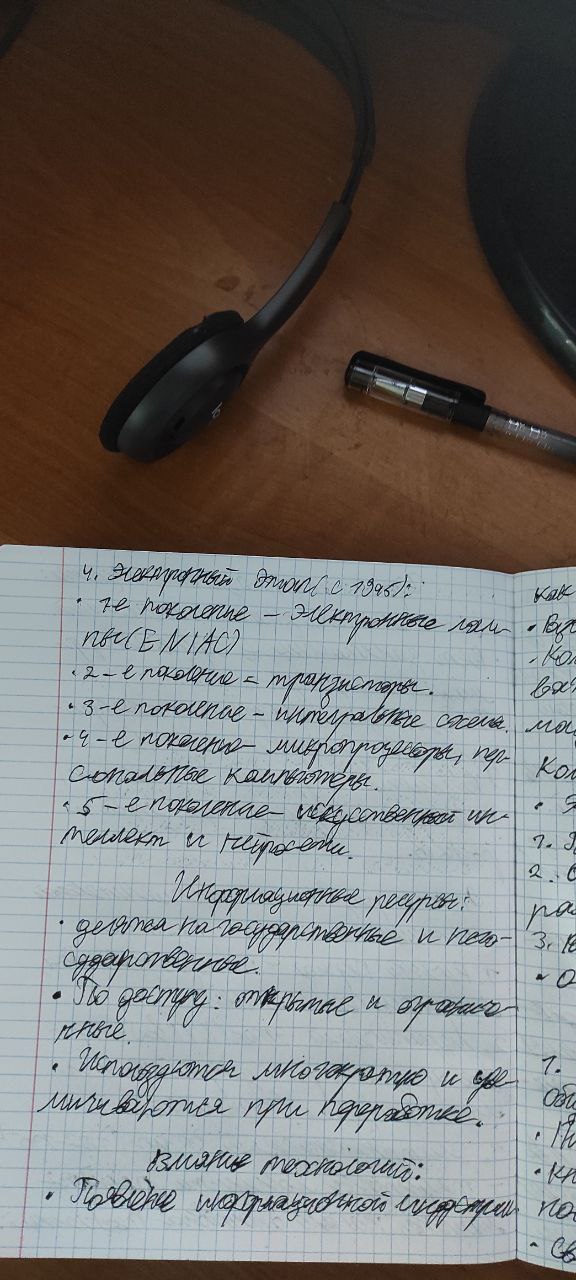 4. Электронный этап (с 1945):
• 1-е поколение – Электронные лам-
пы (ENIAC)
• 2-е поколение = транзисторы.
• 3-е поколение – интегральные схемы.
• 4-е поколение – микропроцессоры, пер-
сональные компьютеры.
• 5-е поколение – искуственный ин-
теллект и нейросети.
Информационные ресурсы:
• делятся на государственные и него-
сударственные.
• По доступу: открытые и ограниче-
нные.
• Используются многократно и уве-
личиваются при переработке.
Влияние технологий:
• Появление информационной индустрии
как
1.
2.
3.
1.